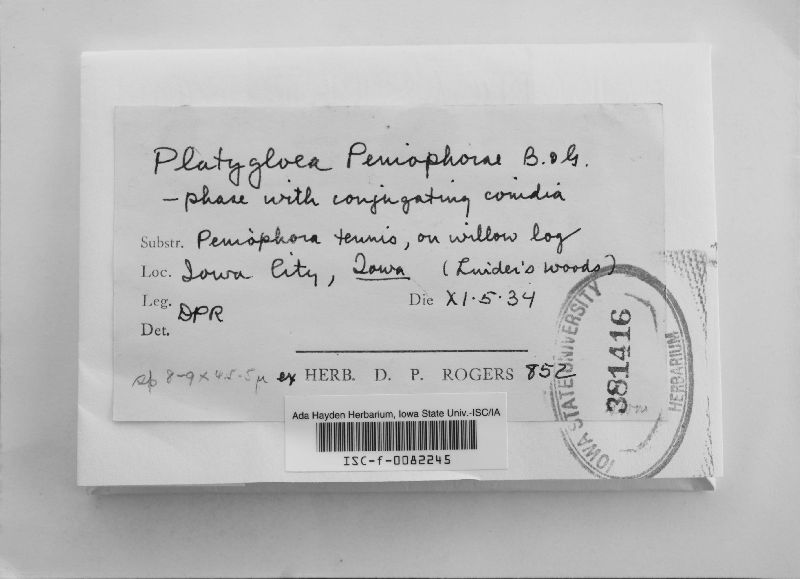 Platygloea Peniophorae B. & G.
– phase with conjugating conidia
Substr. Peniophora tenuis, on willow log
Loc. Iowa City, Iowa (Linder's woods)
Leg. DPR Die XI·5·34
Det.
sp 8-9 x 4.5-5 µ ex HERB. D. P. ROGERS 852
IOWA STATE UNIVERSITY
381416
HERBARIUM
Ada Hayden Herbarium, Iowa State Univ.-ISC/IA
ISC-f-0082245